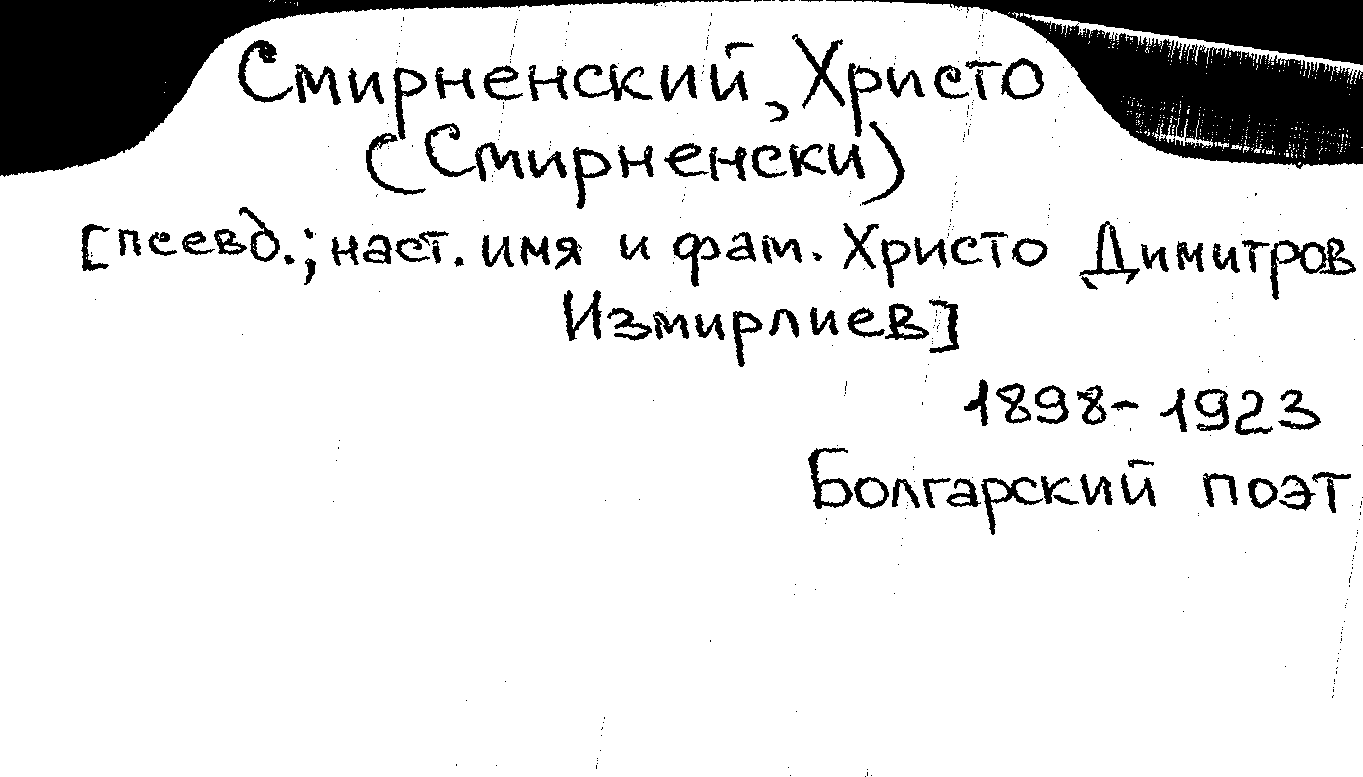 Смирненский, Христо
(Смирненски)
[псевд.; наст. имя и фам. Христо Димитров
Измирлиев]
1898-1923
Болгарский поэт